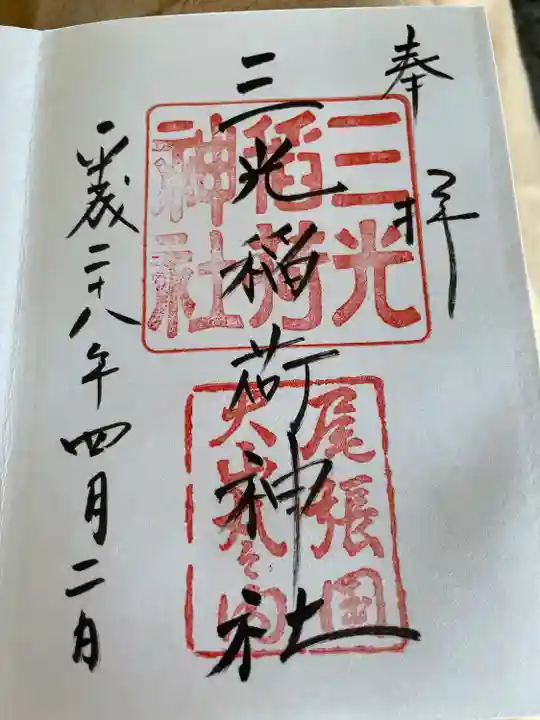 奉拝
三光稲荷神社
平成二十八年四月二日
三光
稲荷
神社
尾張国